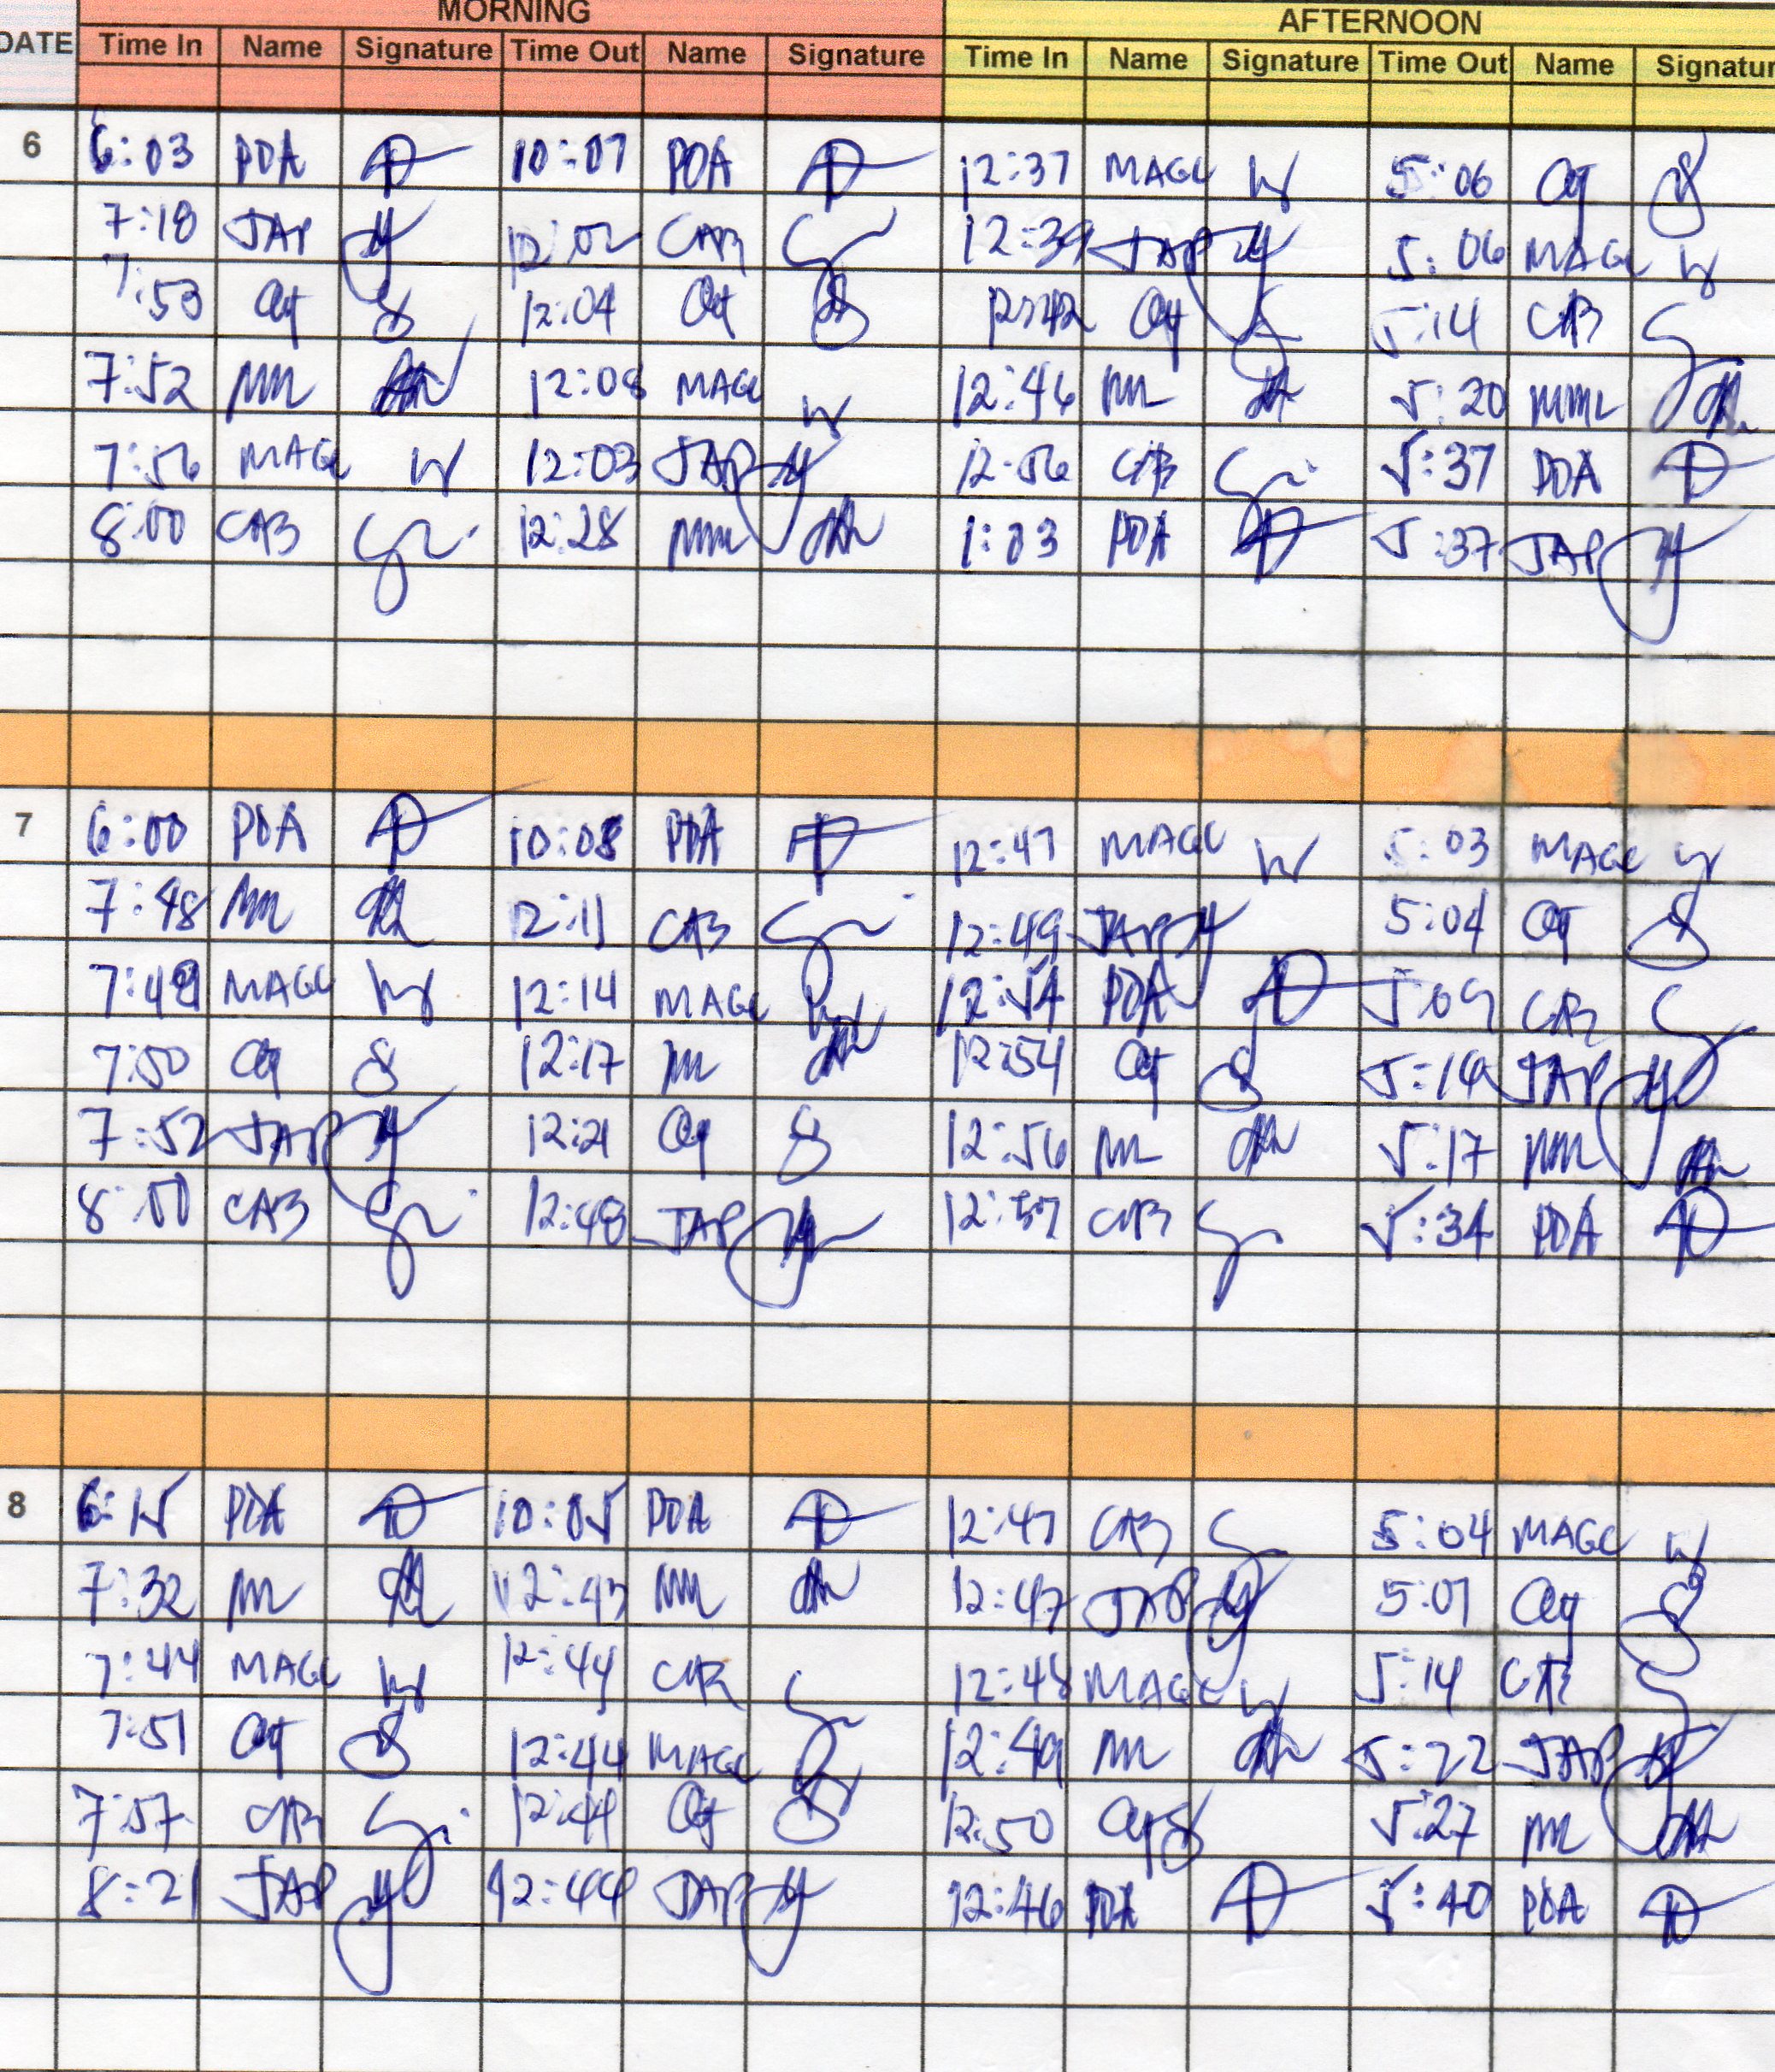 MORNING AFTERNOON
DATE Time In Name Signature Time Out Name Signature Time In Name Signature Time Out Name Signatur
6 6:03 PDA 10:07 PDA 12:37 MAGC 5:06
7:18 JAP 12:02 CAB 12:39 JAP 5:06 MAGC
7:53 12:04 12:42 5:14 CAB
7:52 MM 12:08 MAGC 12:46 MM 5:20 MML
7:56 MAGC 12:03 JAP 12:56 CAB 5:37 PDA
8:00 CAB 12:28 MM 1:03 PDA 5:37 JAP
7 6:00 PDA 10:08 PDA 12:47 MAGC 5:03 MAGC
7:48 MM 12:11 CAB 12:49 JAP 5:04
7:49 MAGC 12:14 MAGC 12:54 PDA 5:09 CAB
7:50 12:17 MM 12:54 JAP
7:52 JAP 12:21 12:56 MM 5:17 MM
8:00 CAB 12:48 JAP 12:57 CAB 5:34 PDA
8 6:15 PDA 10:05 PDA 12:47 CAB 5:04 MAGC
7:32 MM 12:43 MM 12:47 JAP 5:07
7:44 MAGC 12:44 CAB 12:48 MAGC 5:14 CAB
7:51 12:44 MAGC 12:49 MM 5:22 JAP
7:57 CAB 12:44 12:50 5:27 MM
8:21 JAP 12:44 JAP 12:46 PDA 5:40 PDA